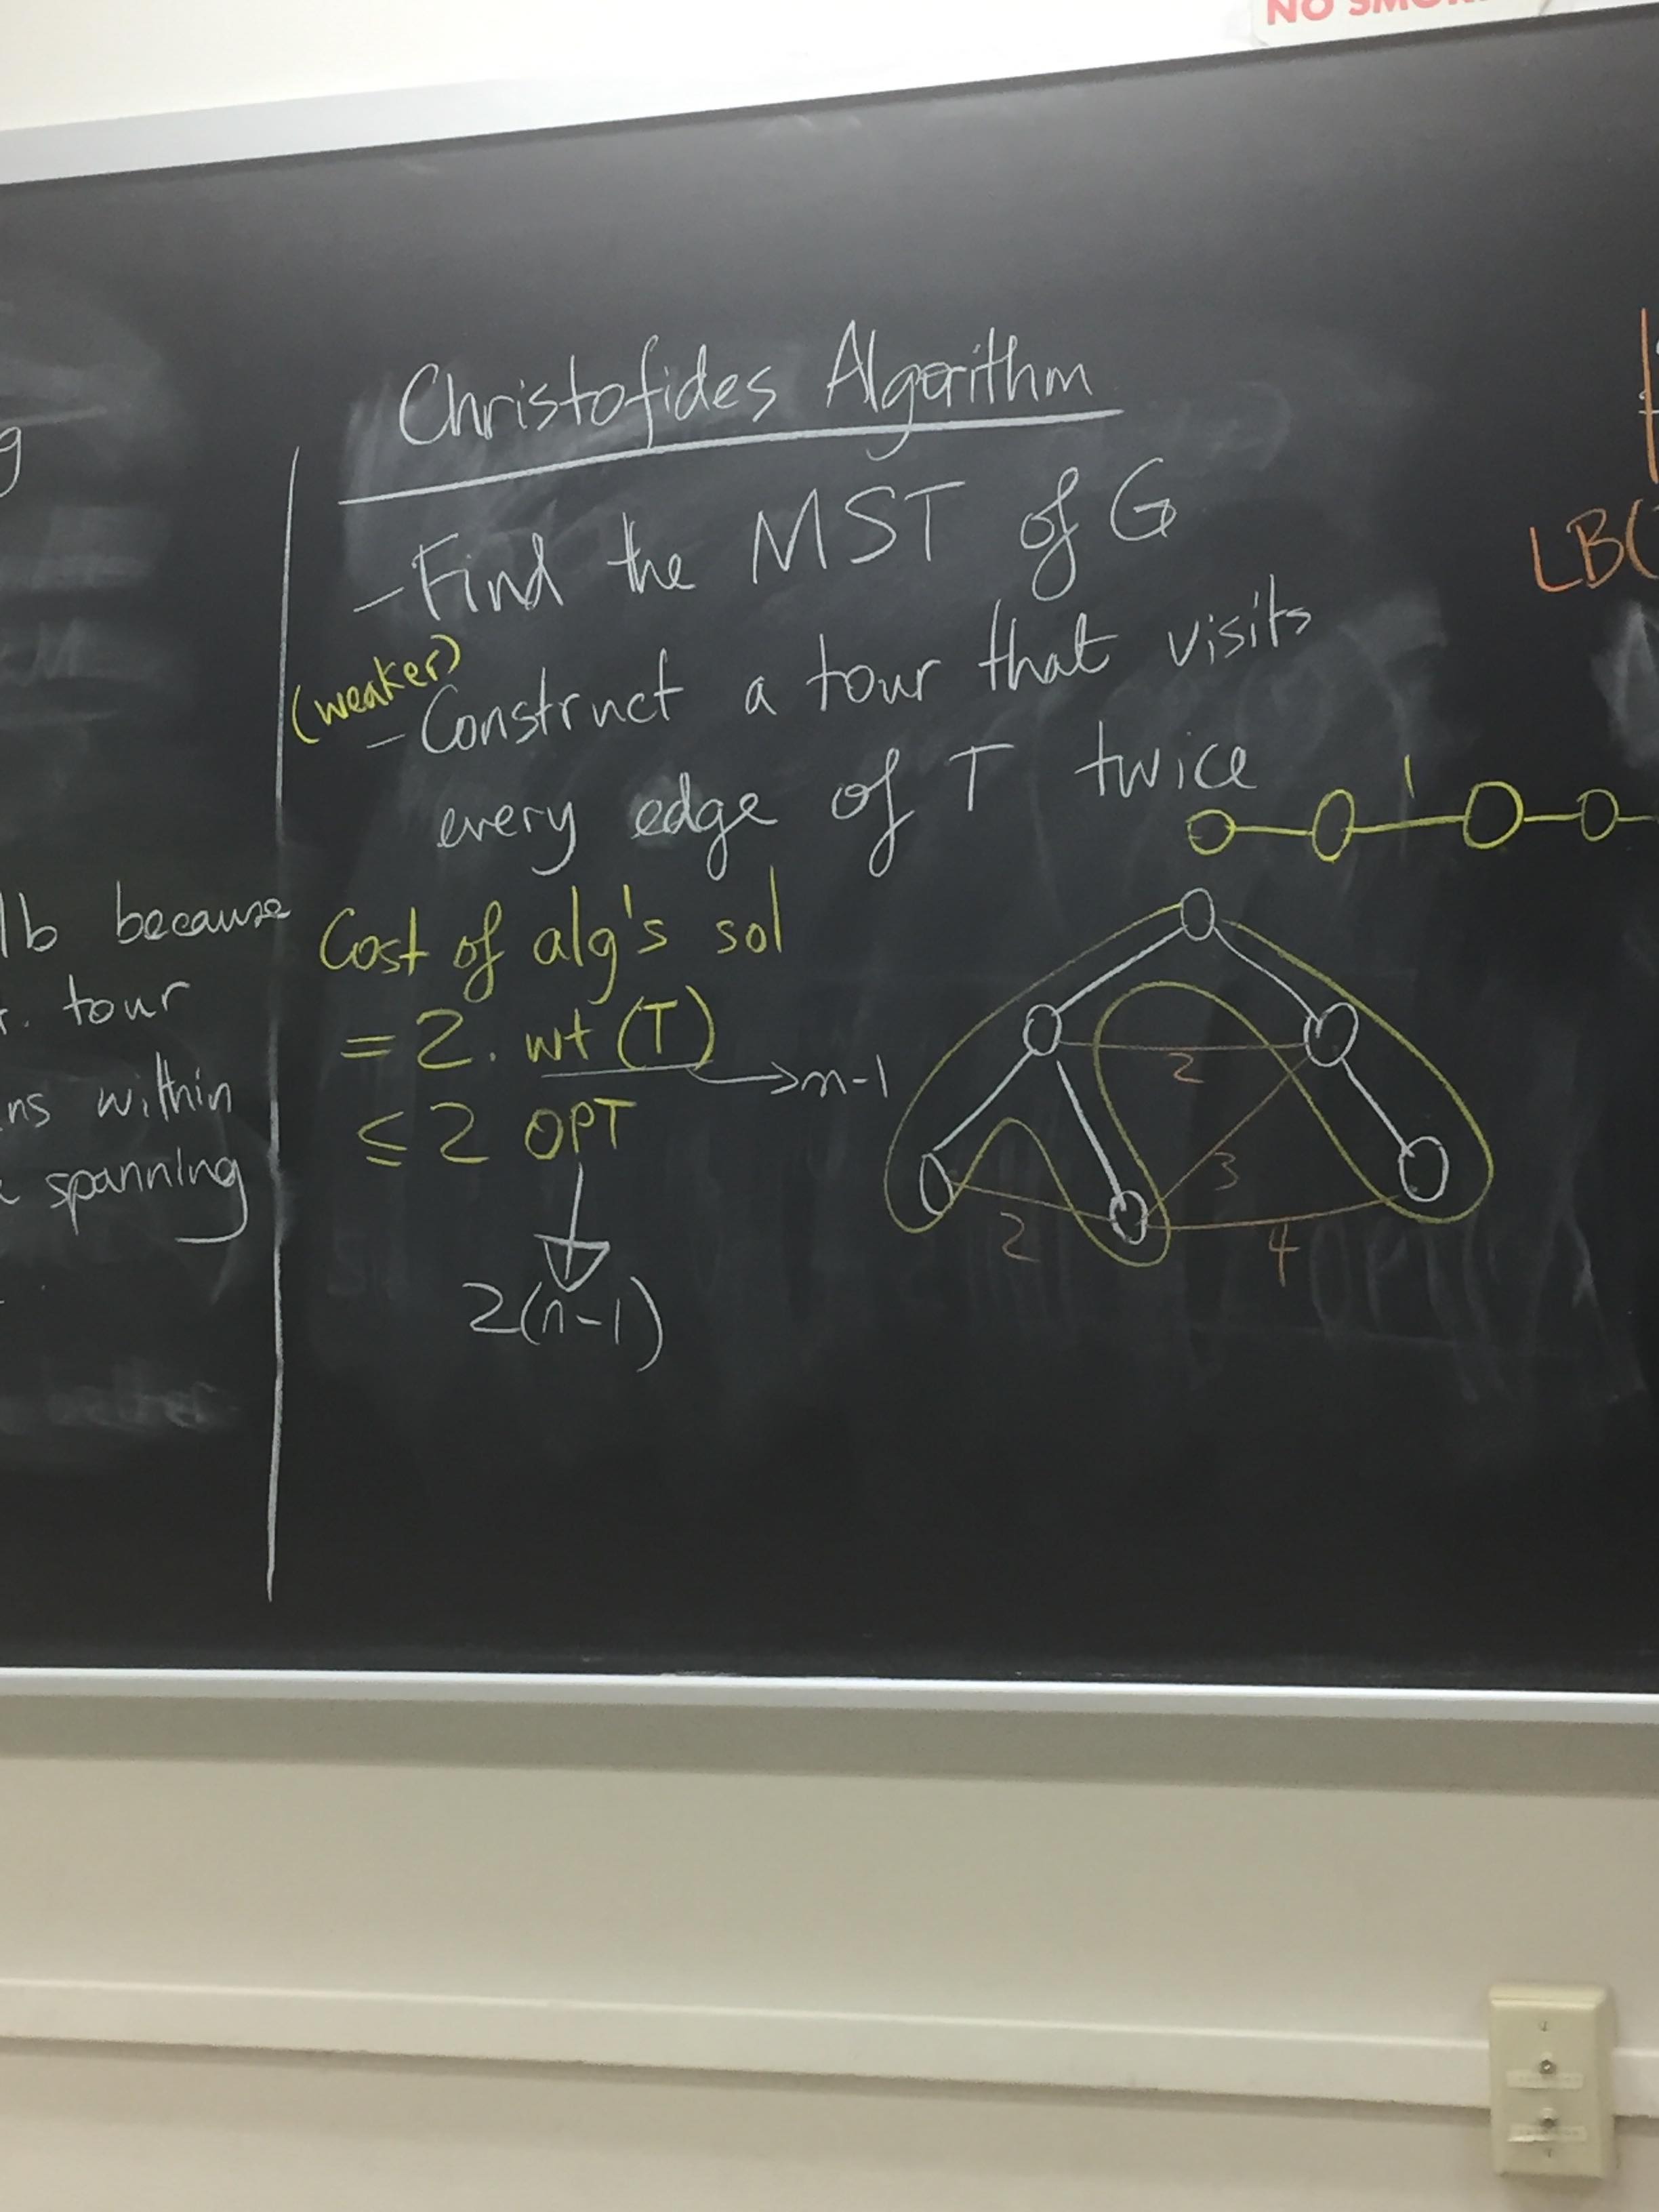 NO
g
lb because
tour
within
spanning
Christofides Algorithm
- Find the MST of G
(weaker)
- Construct a tour that visits
every edge of T twice
Cost of alg's sol
= 2. wt (T)
→ n-1
≤ 2 OPT
2(n-1)
1
2
3
2
4
LB(